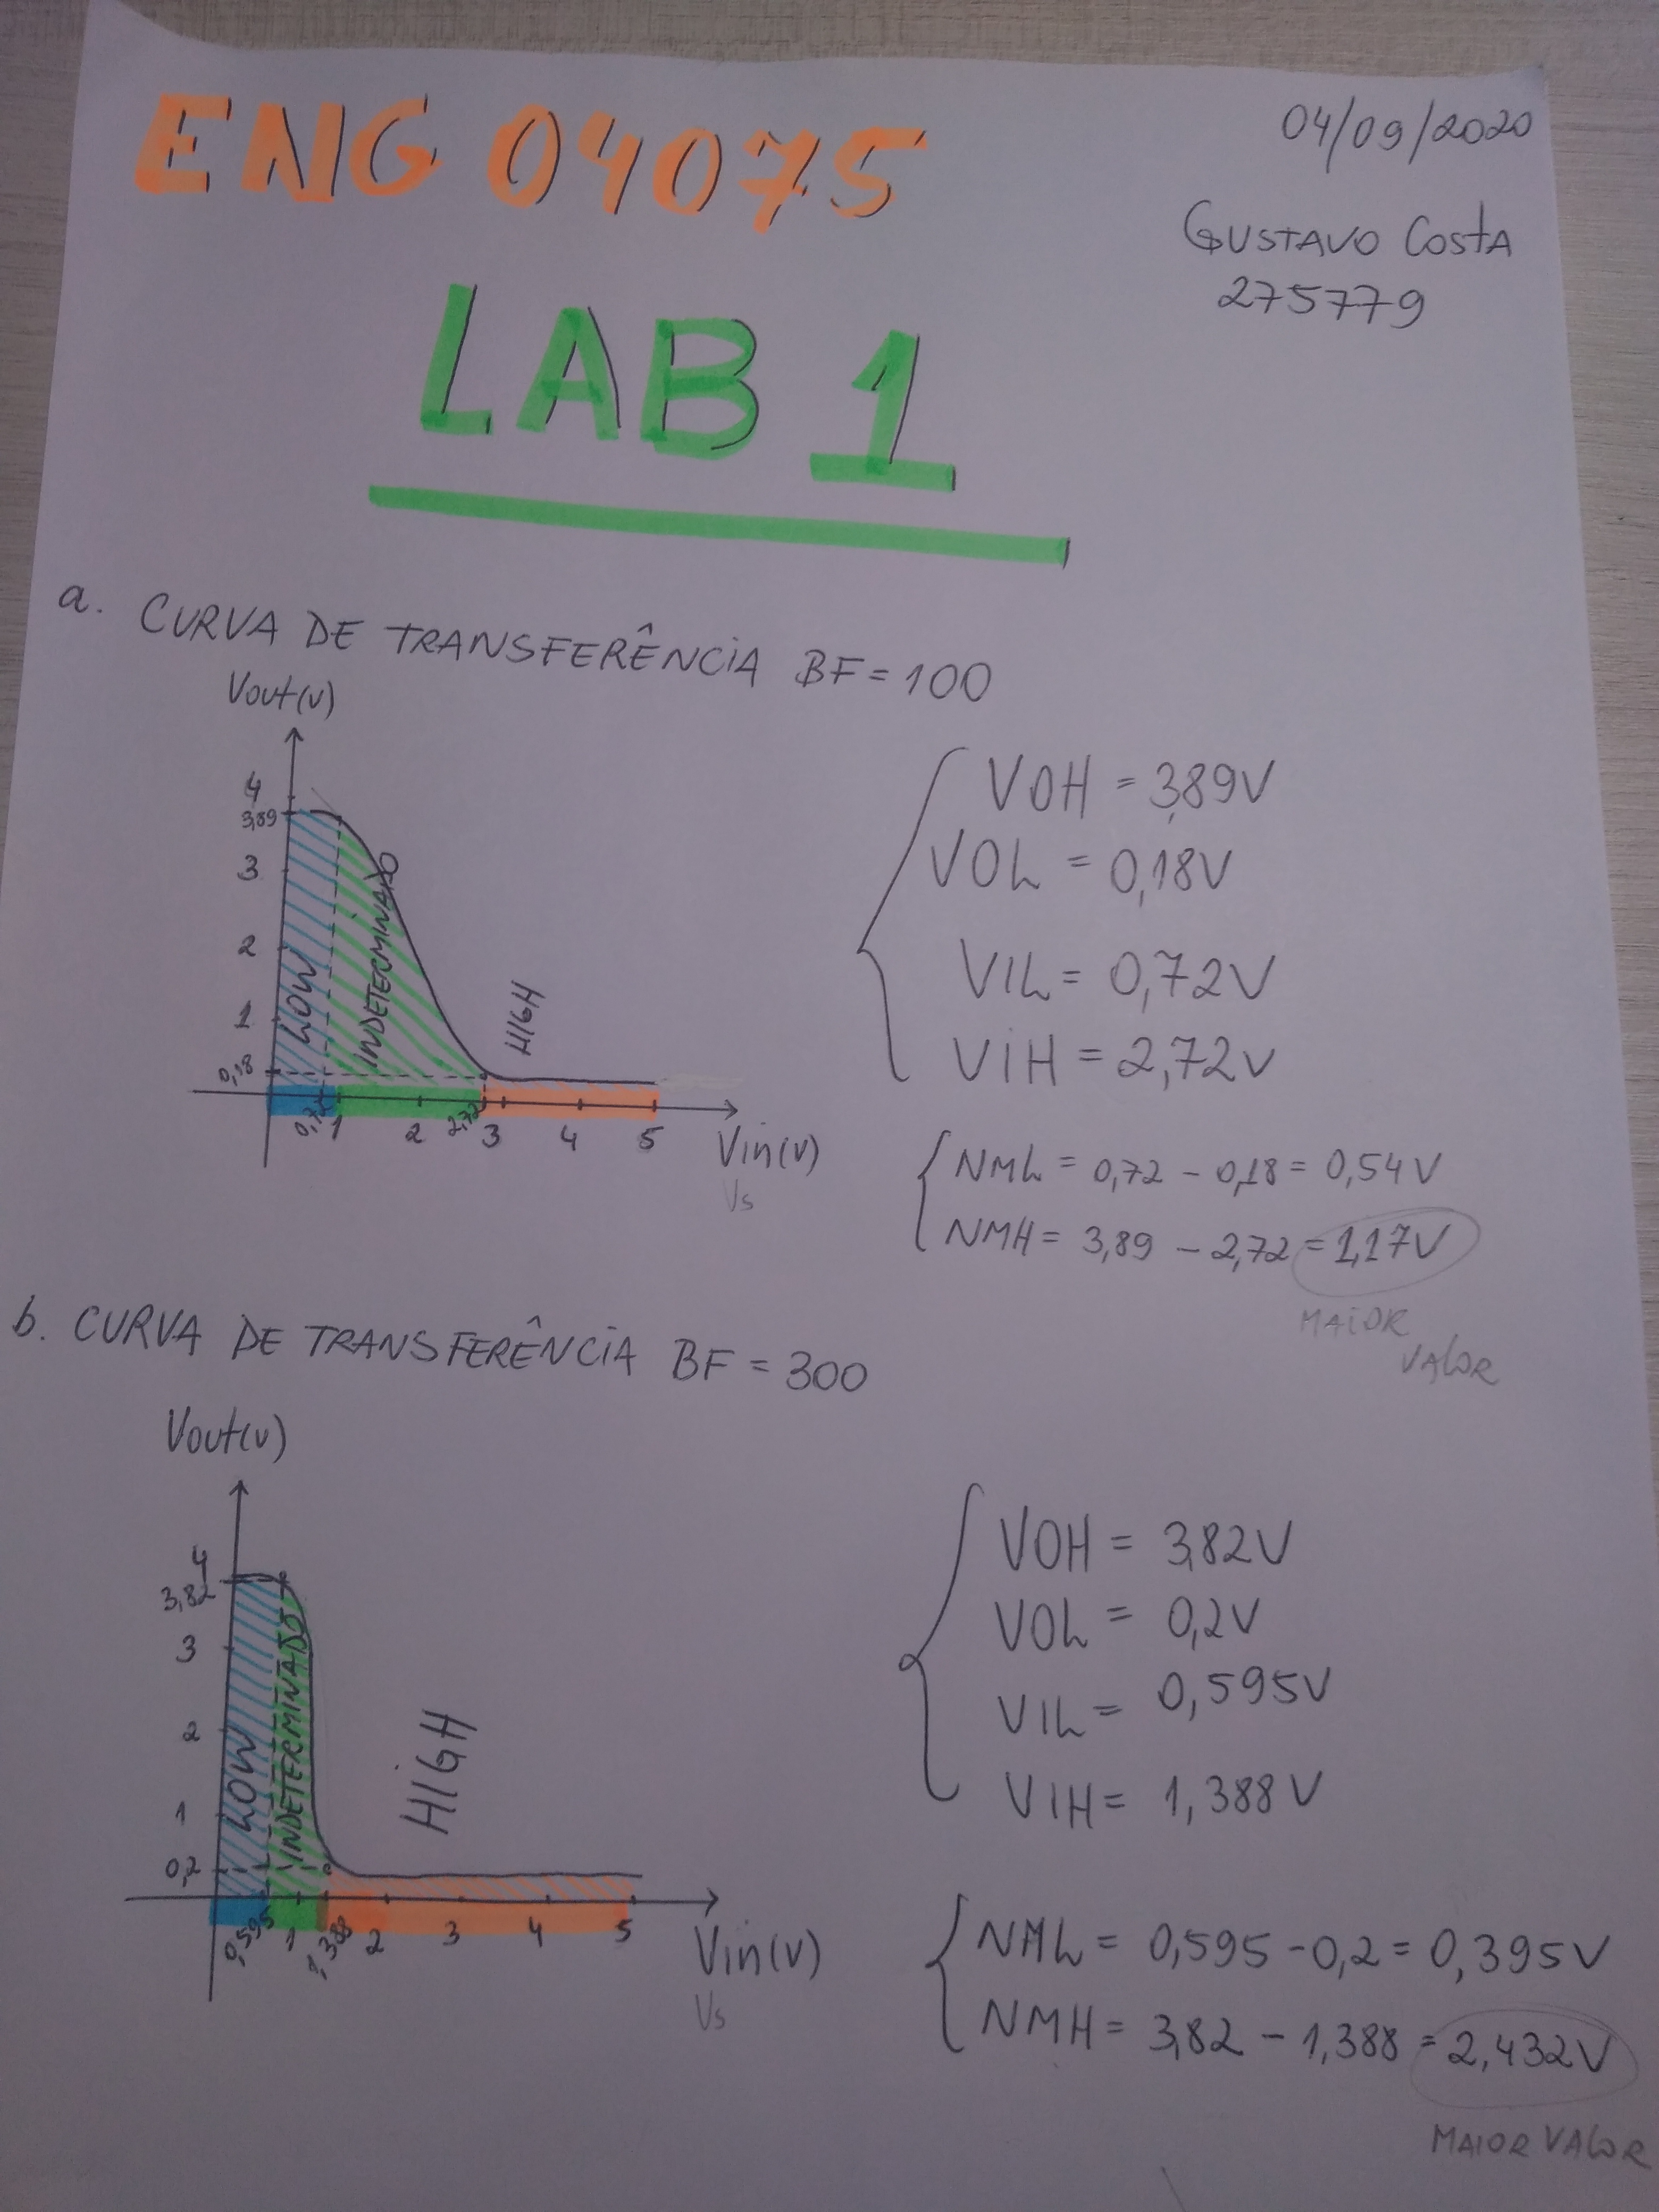 ENG 04075
04/09/2020
GUSTAVO COSTA
275779
LAB 1
a. CURVA DE TRANSFERÊNCIA BF = 100
Vout(v)
4
3,89
3
2
1
0,18
LOW
INDETERMINADO
HIGH
0,72
1
2
2,72
3
4
5
Vin(v)
Vs
VOH = 3,89V
VOL = 0,18V
VIL = 0,72V
VIH = 2,72V
NML = 0,72 - 0,18 = 0,54V
NMH = 3,89 - 2,72 = 1,17V
MAIOR
VALOR
b. CURVA DE TRANSFERÊNCIA BF = 300
Vout(v)
4
3,82
3
2
1
0,2
LOW
INDETERMINADO
HIGH
0,595
1
1,388
2
3
4
5
Vin(v)
Vs
VOH = 3,82V
VOL = 0,2V
VIL = 0,595V
VIH = 1,388V
NML = 0,595 - 0,2 = 0,395V
NMH = 3,82 - 1,388 = 2,432V
MAIOR VALOR